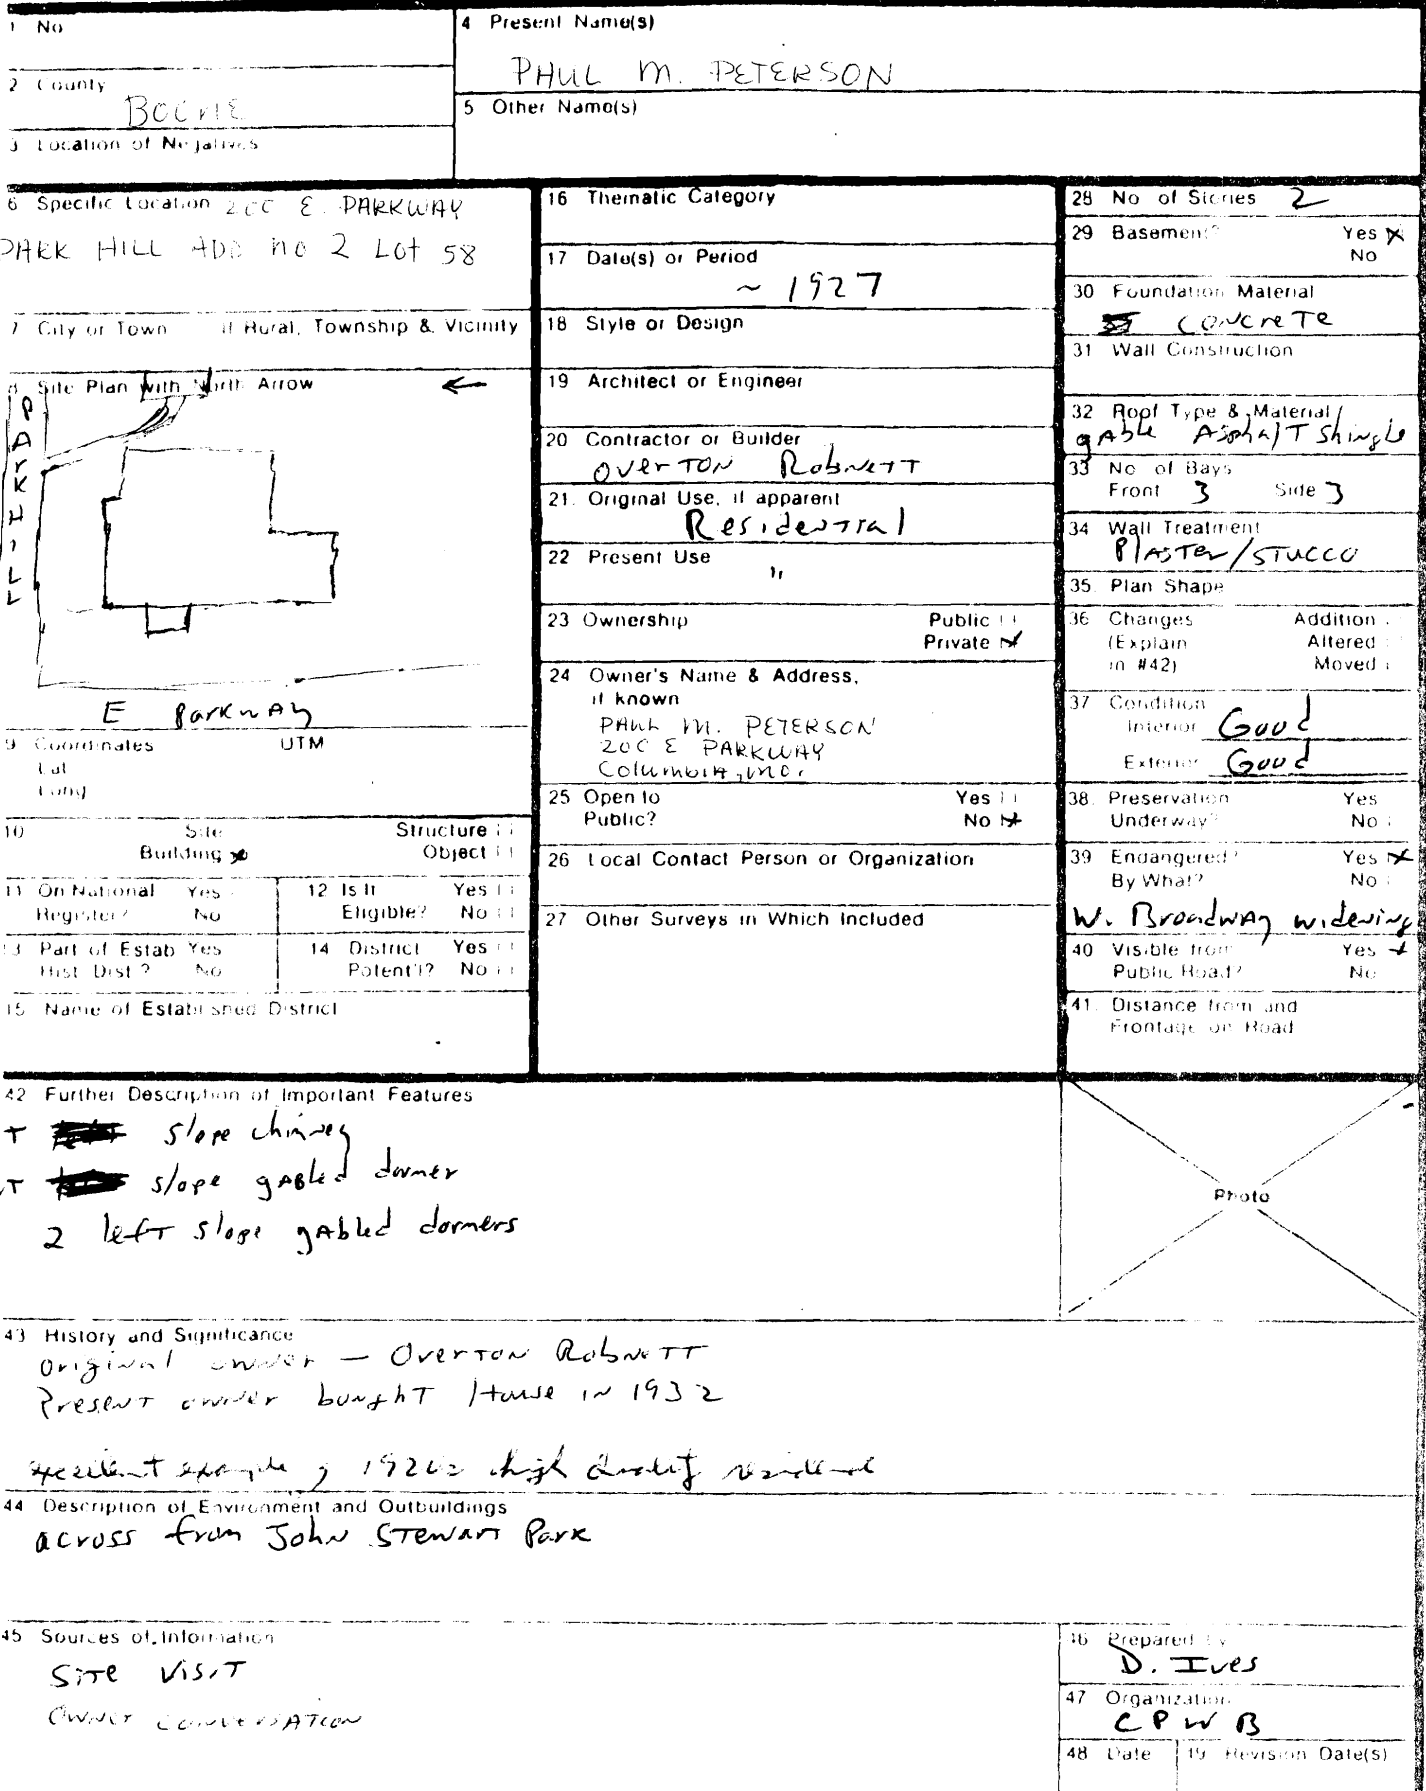 1 No
4 Present Name(s)
PAUL M. PETERSON
2 County
BOONE
5 Other Name(s)
3 Location of Negatives
6 Specific Location 200 E. PARKWAY
PARK HILL ADD NO 2 Lot 58
7 City or Town If Rural, Township & Vicinity
8 Site Plan with North Arrow
PARK HILL
E Parkway
9 Coordinates UTM
Lat
Long
10 Site Structure
Building x Object
11 On National Yes
Register? No
12 Is It Yes
Eligible? No
13 Part of Estab Yes
Hist Dist? No
14 District Yes
Potent'l? No
15 Name of Established District
16 Thematic Category
17 Date(s) or Period
~ 1927
18 Style or Design
19 Architect or Engineer
20 Contractor or Builder
Overton Robnett
21. Original Use, if apparent
Residential
22 Present Use
"
23 Ownership Public
Private x
24 Owner's Name & Address,
if known
PAUL M. PETERSON
200 E PARKWAY
Columbia, MO.
25 Open to Yes
Public? No x
26 Local Contact Person or Organization
27 Other Surveys in Which Included
28 No of Stories 2
29 Basement? Yes x
No
30 Foundation Material
CONCRETE
31 Wall Construction
32 Roof Type & Material
gable Asphalt Shingle
33 No of Bays
Front 3 Side 3
34 Wall Treatment
Plaster/STUCCO
35. Plan Shape
36 Changes Addition
(Explain Altered
in #42) Moved
37 Condition
Interior Good
Exterior Good
38. Preservation Yes
Underway? No
39 Endangered? Yes x
By What? No
W. Broadway widening
40 Visible from Yes x
Public Road? No
41. Distance from and
Frontage on Road
42 Further Description of Important Features
T slope chimney
T slope gabled dormer
2 left slope gabled dormers
Photo
43 History and Significance
original owner — Overton Robnett
Present owner bought House in 1932
excellent example of 1920s high quality residence
44 Description of Environment and Outbuildings
across from John Stewart Park
45 Sources of Information
Site Visit
Owner conversation
46 Prepared by
D. Ives
47 Organization
CPWB
48 Date 49 Revision Date(s)